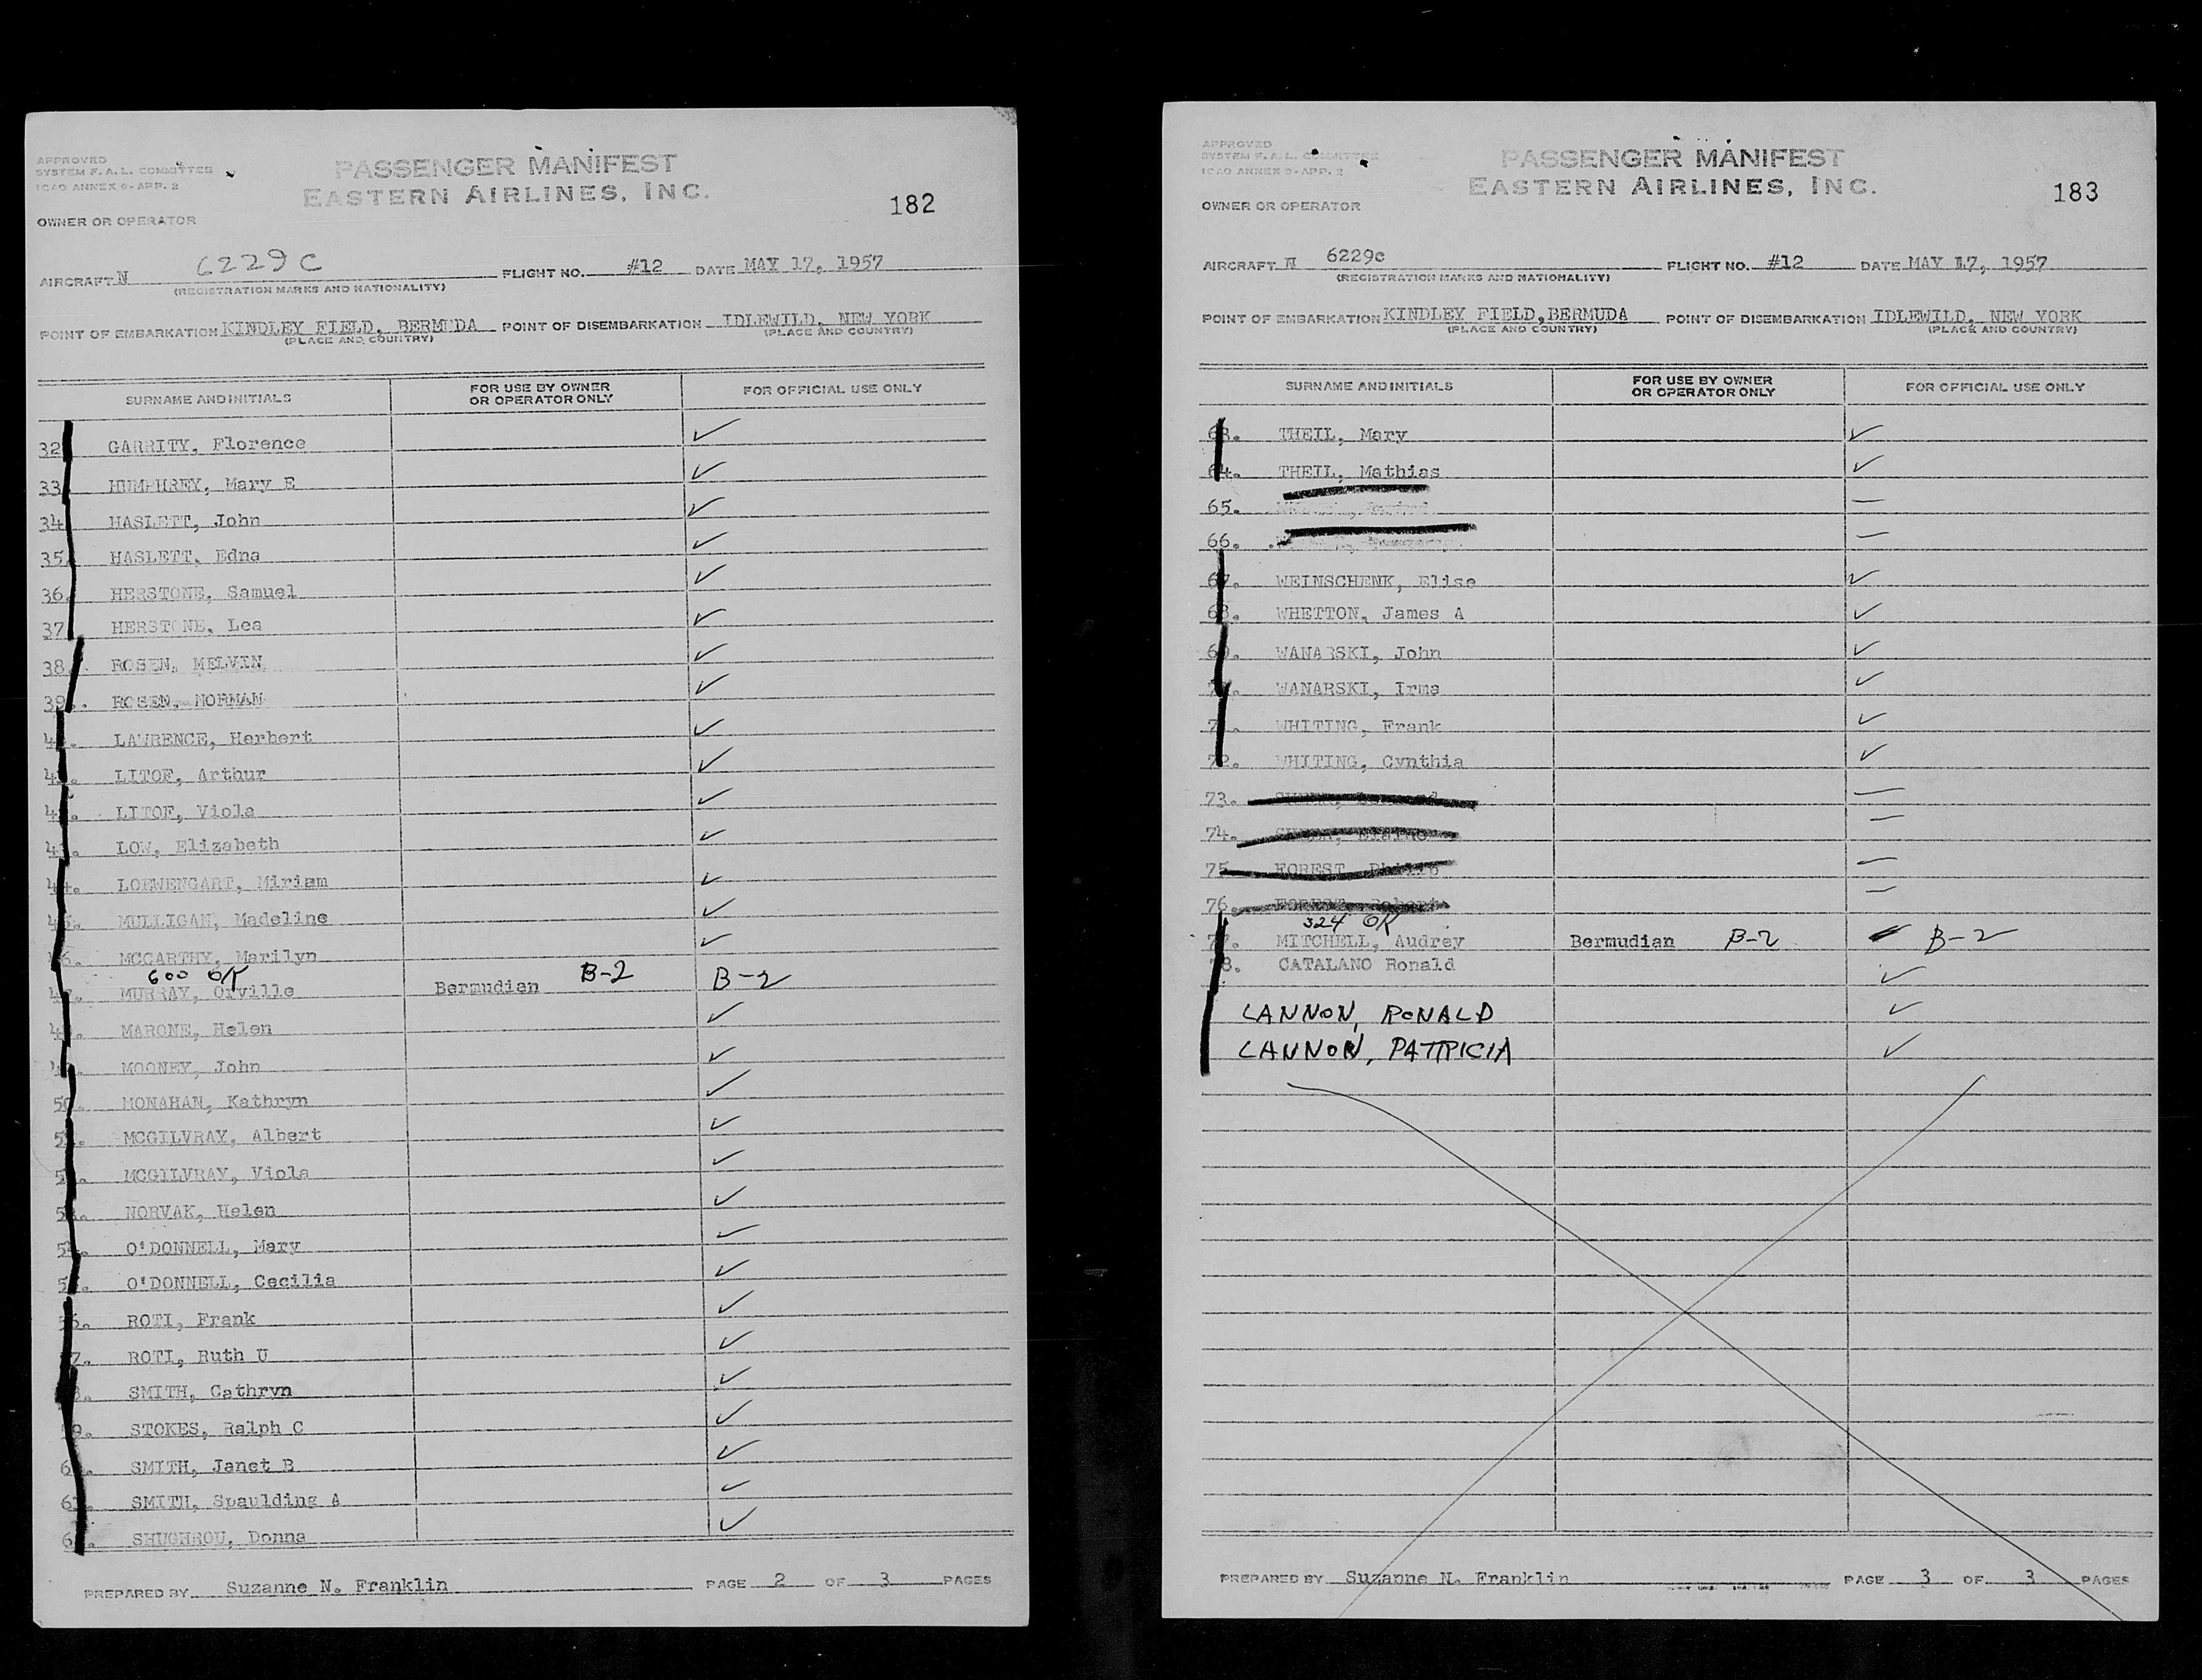 APPROVED
SYSTEM F. A. L. COMMITTEE
ICAO ANNEX 9 - APP. 2
PASSENGER MANIFEST
EASTERN AIRLINES, INC.
182
OWNER OR OPERATOR
AIRCRAFT N 6229C FLIGHT NO. #12 DATE MAY 17, 1957
(REGISTRATION MARKS AND NATIONALITY)
POINT OF EMBARKATION KINDLEY FIELD, BERMUDA POINT OF DISEMBARKATION IDLEWILD, NEW YORK
(PLACE AND COUNTRY) (PLACE AND COUNTRY)
SURNAME AND INITIALS FOR USE BY OWNER OR OPERATOR ONLY FOR OFFICIAL USE ONLY
32 GARRITY, Florence ✓
33 HUMPHREY, Mary E ✓
34 HASLETT, John ✓
35. HASLETT, Edna ✓
36. HERSTONE, Samuel ✓
37 HERSTONE, Lea ✓
38. ROSEN, MELVIN ✓
39. ROSEN, NORMAN ✓
4. LAWRENCE, Herbert ✓
4. LITOF, Arthur ✓
4. LITOF, Viola ✓
4. LOW, Elizabeth ✓
4. LOEWENGART, Miriam ✓
4. MULLIGAN, Madeline ✓
6. MCCARTHY, Marilyn ✓
600 OK
4. MURRAY, Orville Bermudian B-2 B-2
4. MARONE, Helen ✓
4. MOONEY, John ✓
50. MONAHAN, Kathryn ✓
5. MCGILVRAY, Albert ✓
5. MCGILVRAY, Viola ✓
5. NORVAK, Helen ✓
5. O'DONNELL, Mary ✓
5. O'DONNELL, Cecilia ✓
56. ROTI, Frank ✓
7. ROTI, Ruth U ✓
8. SMITH, Cathryn ✓
9. STOKES, Ralph C ✓
6. SMITH, Janet B ✓
6. SMITH, Spaulding A ✓
6. SHUGHROU, Donna ✓
PREPARED BY Suzanne N. Franklin PAGE 2 OF 3 PAGES
APPROVED
SYSTEM F. A. L. COMMITTEE
ICAO ANNEX 9 - APP. 2
PASSENGER MANIFEST
EASTERN AIRLINES, INC.
183
OWNER OR OPERATOR
AIRCRAFT N 6229c FLIGHT NO. #12 DATE MAY 17, 1957
(REGISTRATION MARKS AND NATIONALITY)
POINT OF EMBARKATION KINDLEY FIELD, BERMUDA POINT OF DISEMBARKATION IDLEWILD, NEW YORK
(PLACE AND COUNTRY) (PLACE AND COUNTRY)
SURNAME AND INITIALS FOR USE BY OWNER OR OPERATOR ONLY FOR OFFICIAL USE ONLY
63. THEIL, Mary ✓
64. THEIL, Mathias ✓
65. —
66. —
67. WEINSCHENK, Elise ✓
68. WHETTON, James A ✓
69. WANARSKI, John ✓
7. WANARSKI, Irma ✓
7. WHITING, Frank ✓
72. WHITING, Cynthia ✓
73. —
74. —
75 FOREST —
76. FOREST, Robert —
324 OK
77. MITCHELL, Audrey Bermudian B-2 B-2
8. CATALANO Ronald ✓
LANNON, RONALD ✓
LANNON, PATTRICIA ✓
PREPARED BY Suzanne N. Franklin PAGE 3 OF 3 PAGES